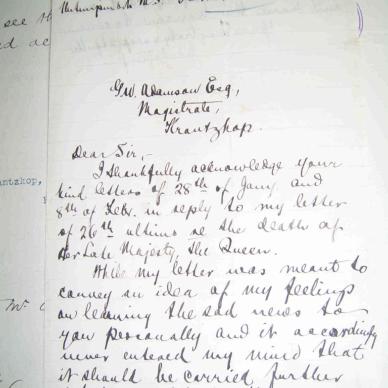 see th
G.W. Adamson Esq,
Magistrate,
Krantzkop.
Dear Sir,-
I thankfully acknowledge your
kind letters of 28th of Jany. and
8th of Febr. in reply to my letter
of 26th ultimo re the death of
Her Late Majesty, The Queen.
While my letter was meant to
convey an idea of my feelings
on learning the sad news to
you personally and it accordingly
never entered my mind that
it should be carried further
antzkop,